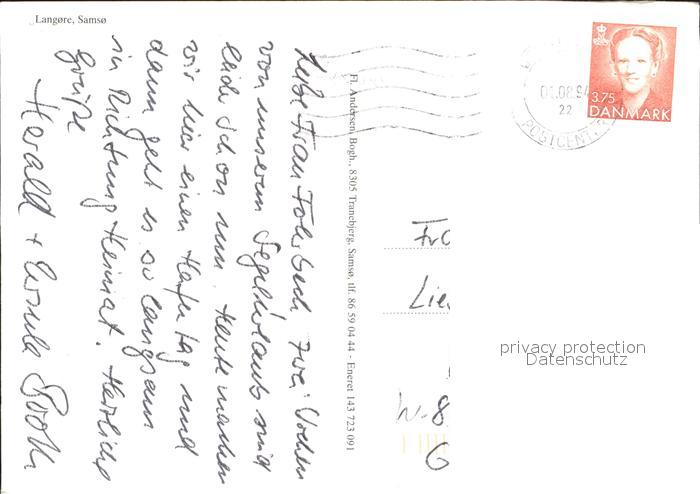 Langøre, Samsø
Liebe Frau Follerbach, zwei Wochen
von unserem Segelurlaub sind
leider schon um. Heute machen
wir hier einen Hafentag und
dann geht es so langsam
in Richtung Heimat. Herzliche
Grüße
Harald + Ursula
Fl. Andersen, Bogh., 8305 Tranebjerg, Samsø, tlf. 86 59 04 44 - Eneret 143 723 091
3.75
DANMARK
01.08.94
22
POSTCENT
Fr
Lie
W-8
6
privacy protection
Datenschutz